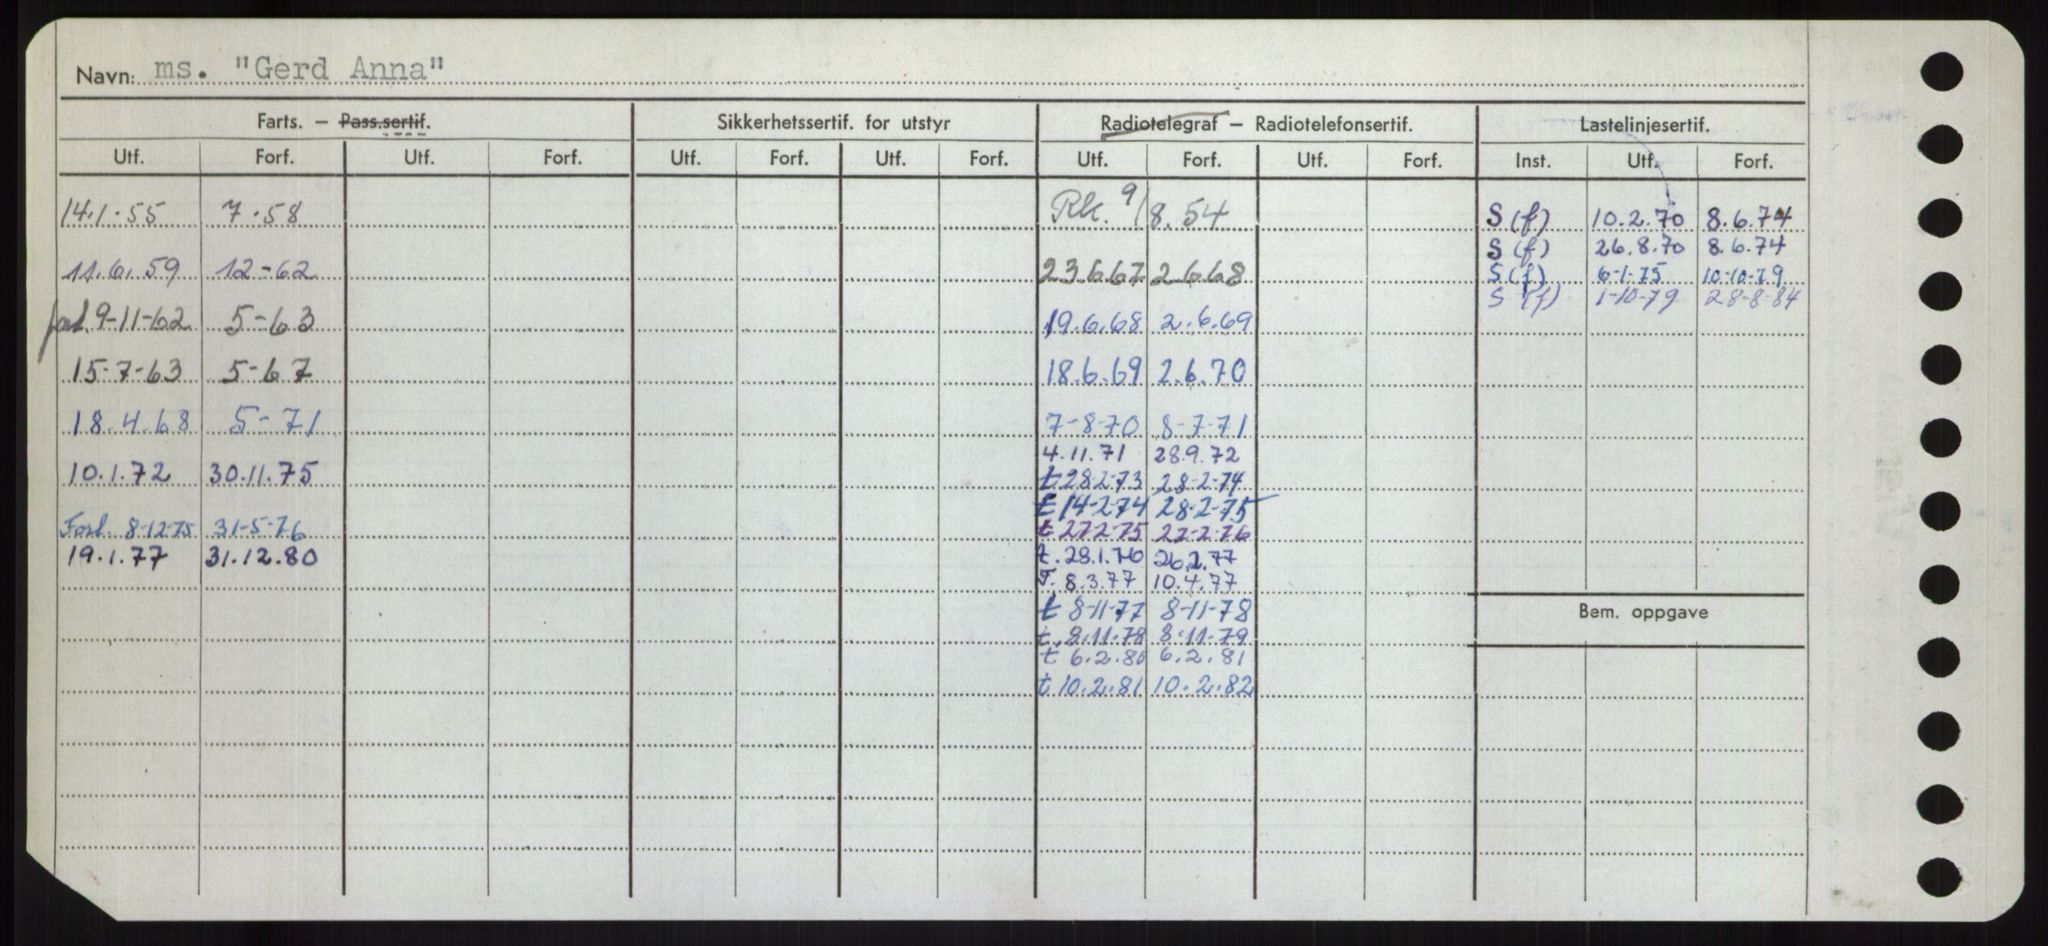 Navn: ms. "Gerd Anna"
Farts. — Pass.sertif. Sikkerhetssertif. for utstyr Radiotelegraf — Radiotelefonsertif. Lastelinjesertif.
Utf. Forf. Utf. Forf. Utf. Forf. Utf. Forf. Utf. Forf. Utf. Forf. Inst. Utf. Forf.
14.1.55 7.58 Rk. 9/8.54 S(f) 10.2.70 8.6.74
S(f) 26.8.70 8.6.74
11.6.59 12-62 23.6.67 2.6.68 S(f) 6-1-75 10-10-79
S(f) 1-10-79 28-8-84
forl. 9-11-62 5-63 19.6.68 2.6.69
15-7-63 5-67 18.6.69 2.6.70
18.4.68 5-71 7-8-70 8-7-71
4.11.71 28.9.72
10.1.72 30.11.75 t 28-2-73 28-2-74
t 14-2-74 28-2-75
Forl. 8-12-75 31-5-76 t 27-2-75 27-2-76
19.1.77 31.12.80 t. 28.1.76 26.2.77
T. 8.3.77 10.4.77
t 8-11-77 8-11-78 Bem. oppgave
t. 8.11.78 8.11.79
t 6.2.80 6.2.81
t 10.2.81 10.2.82